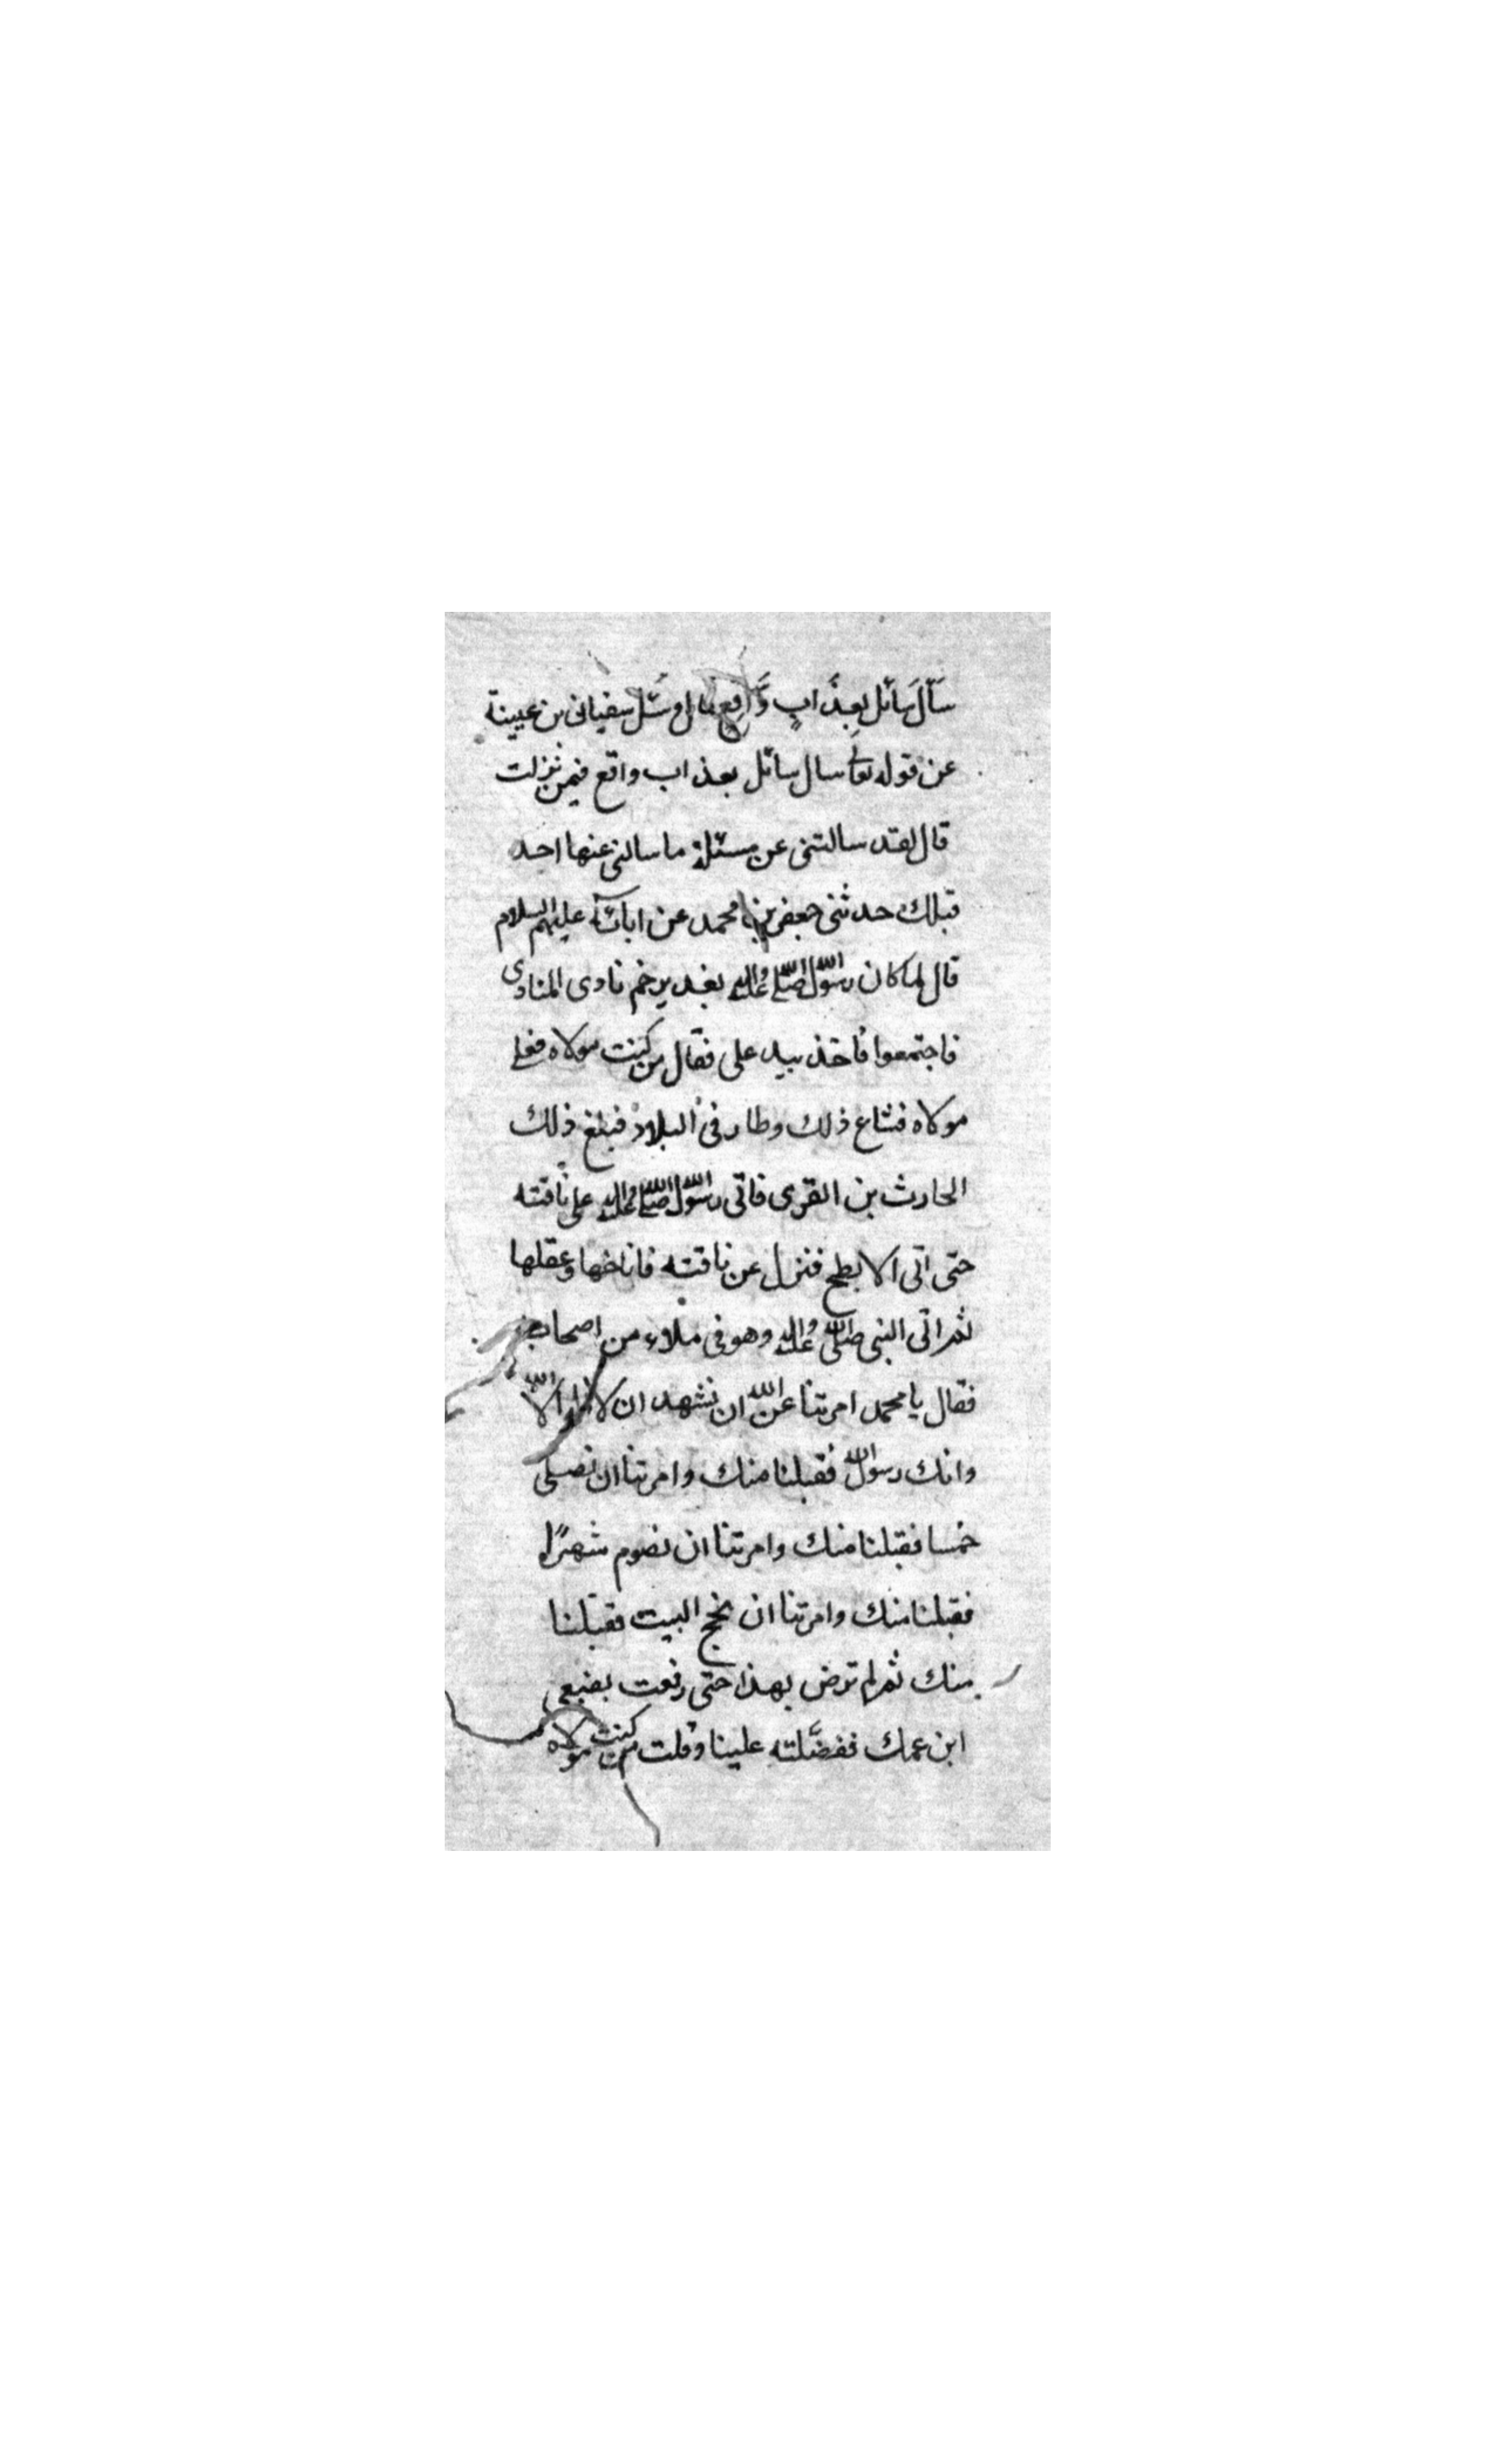 سَأَلَ سَائل بِعذَابٍ وَّاقِعٍ قال وسُئل سفيان بن عيينة
عن قوله تعالى سال سائل بعذاب واقع فيمن نزلت
قال لقد سالتنى عن مسئلة ما سالنى عنها احد
قبلك حدثنى جعفر بن محمد عن ابائه عليهم السلام
قال لما كان رسول الله صلى الله عليه واله بغدير خم نادى المنادى
فاجتمعوا فاخذ بيد على فقال من كنت مولاه فعلى
مولاه فشاع ذلك وطار فى البلاد فبلغ ذلك
الحارث بن القرى فاتى رسول الله صلى الله عليه واله على ناقته
حتى اتى الابطح فنزل عن ناقته فاناخها وعقلها
ثم اتى النبى صلى الله عليه واله وهو فى ملاء من اصحابه
فقال يا محمد امرتنا عن الله ان نشهد ان لا اله الا الله
وانك رسول الله فقبلنا منك وامرتنا ان نصلى
خمسا فقبلنا منك وامرتنا ان نصوم شهرًا
فقبلنا منك وامرتنا ان نحج البيت فقبلنا
منك ثم لم ترض بهذا حتى رفعت بضبعى
ابن عمك ففضَّلته علينا وقلت من كنت مولاه